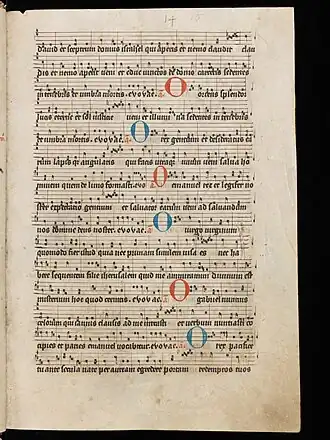 dauid et sceptrum domus israhel qui aperis et nemo claudit clau
dis et nemo aperit veni et educ vinctos de domo carceris sedentes
in tenebris et umbra mortis. evovae. O oriens splendor
lucis eterne et sol iusticie veni et illumina sedentes in tenebris
et umbra mortis. evovae. O rex gentium et desideratus ea
rum lapis qui angularis qui facis utraque unum veni salva ho
minem quem de limo formasti. evovae. O emanuel rex et legifer no
ster expectatio gentium et salvator earum veni ad salvandum
nos domine deus noster. evovae. O virgo virginum
quomodo fiet istud quia nec primam similem visa es nec ha
bere sequentem filie iherusalem quid me admiramini divinum est
misterium hoc quod cernitis. evovae. O gabriel nuntius
celorum qui ianuis clausis ad me intrasti et verbum nuntiasti con
cipies et paries emanuel vocabitur. evovae. O rex pacifice
tu ante secula nate per auream egredere portam redemptos tuos